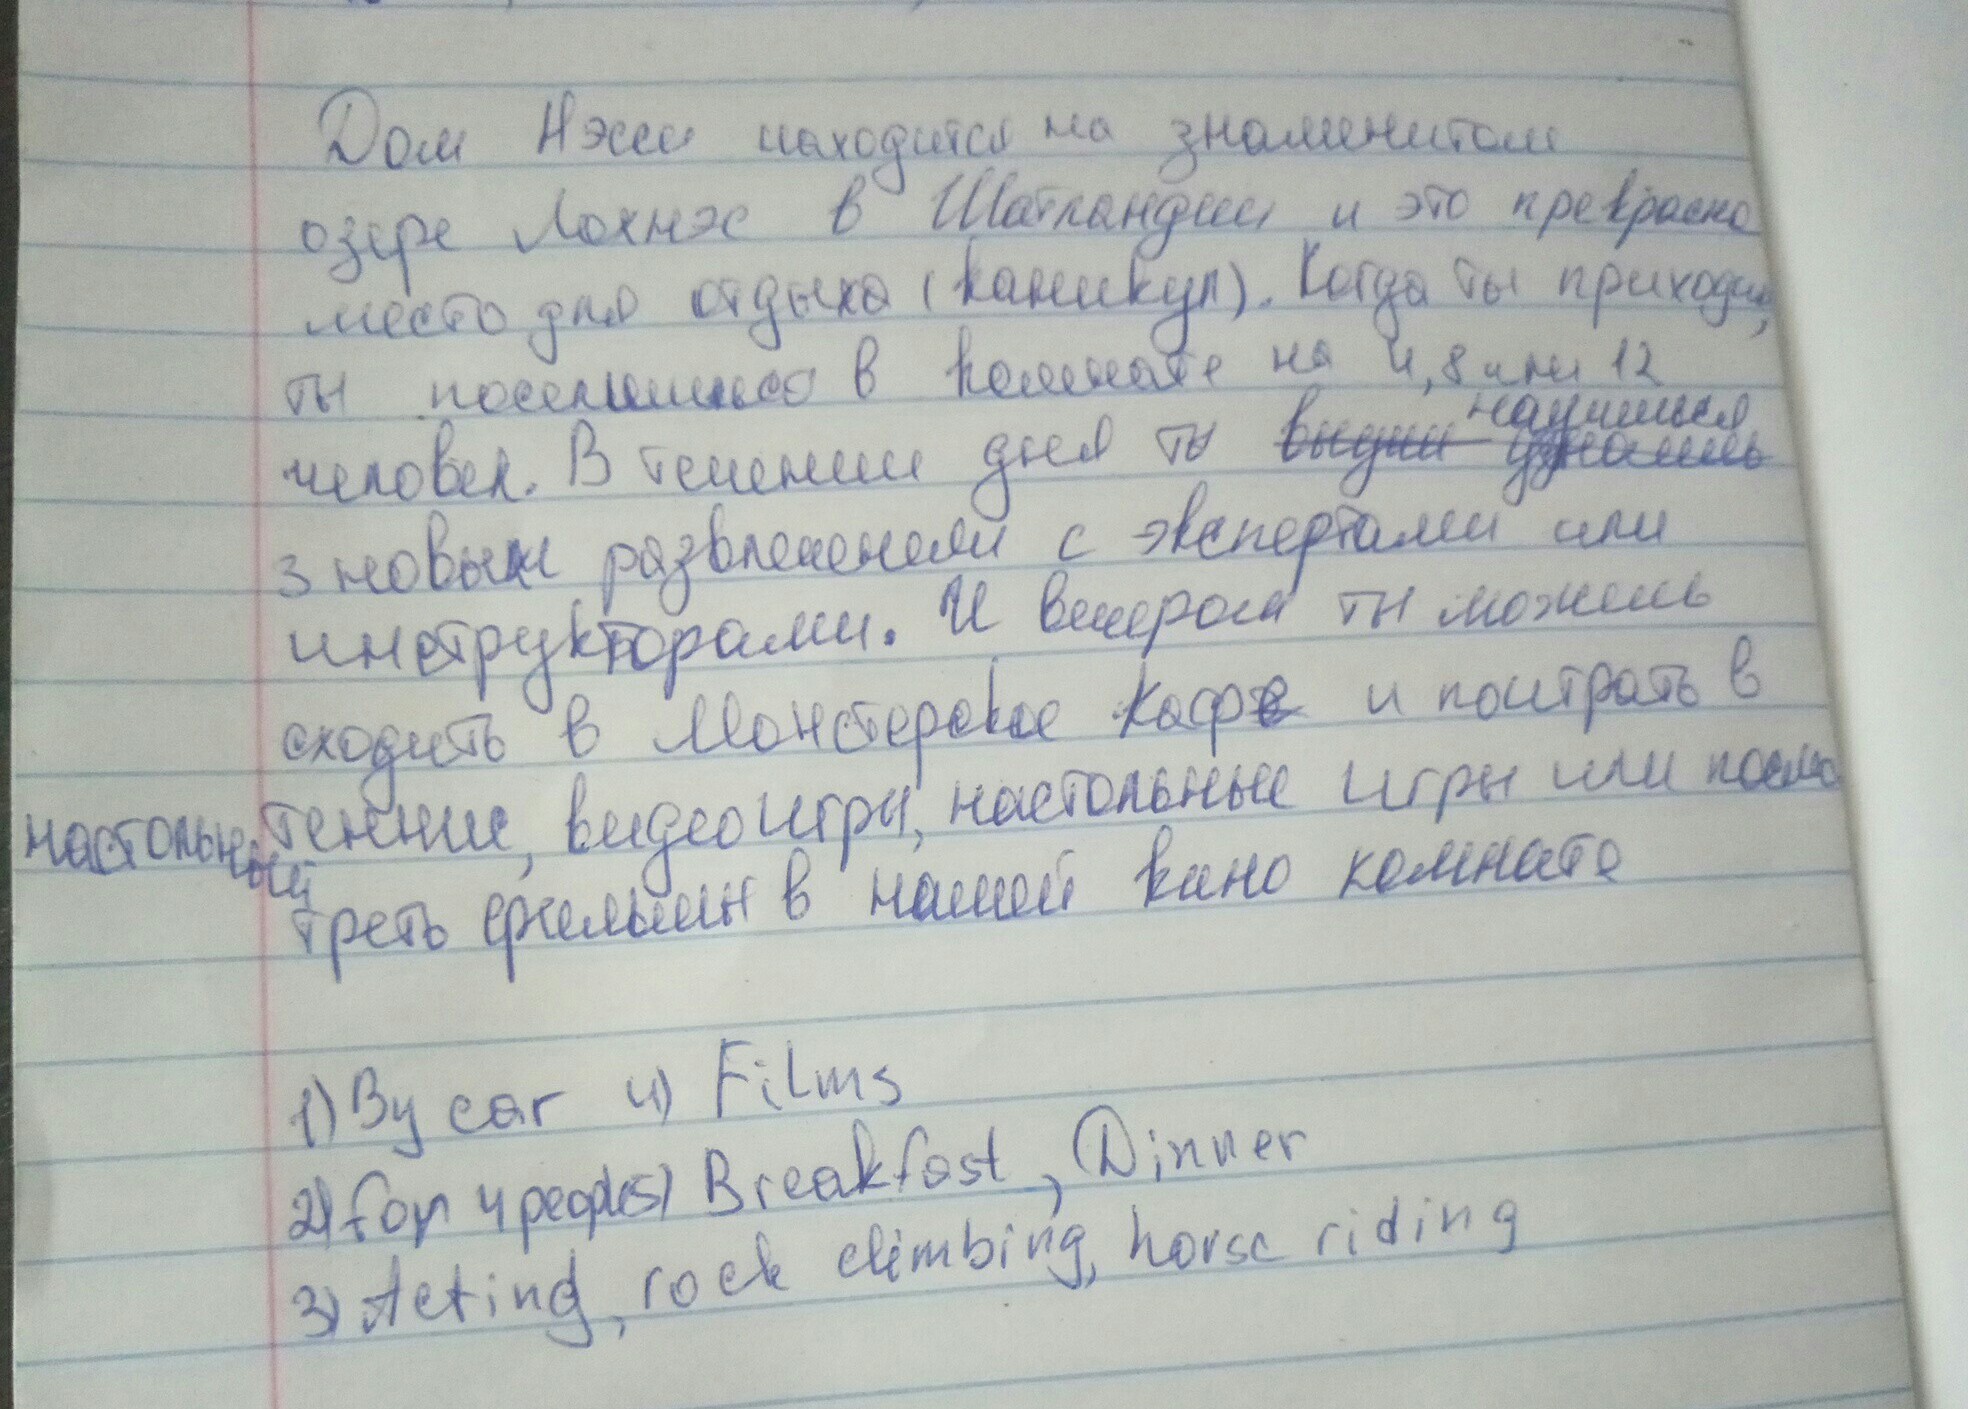 Дом Нэси находится на знаменитом
озере Лохнэс в Шатландии и это прекрасно
место для отдыха (каникул). Когда ты приходиш,
ты поселишься в комнате на 4, 8 или 12
человек. В течении дня ты научишься
3 новым развлеченеям с экспертами или
инструкторами. И вечером ты можешь
сходить в Монстерское кафе и поиграть в
настольный теннис, видеоигры, настольные игры или посмо
треть фильмы в нашей кино комнате
1) By car 4) Films
2) for 4 people 5) Breakfast, Dinner
3) Acting, rock climbing, horse riding